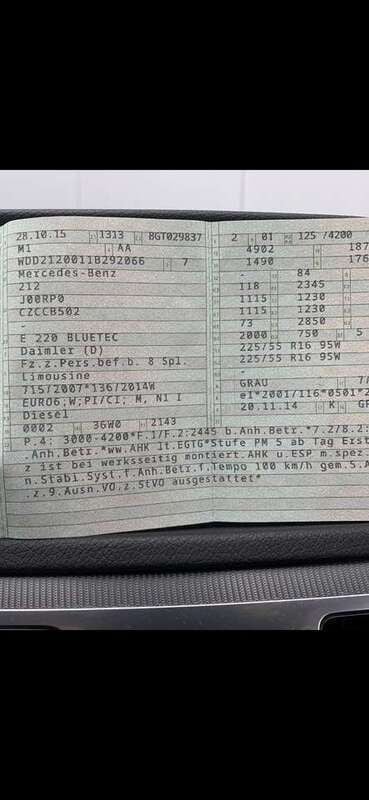 28.10.15 1313 BGT029837
M1 AA
WDD2120011B292066 7
Mercedes-Benz
212
J00RP0
CZCCB502
-
E 220 BLUETEC
Daimler (D)
Fz.z.Pers.bef.b. 8 Spl.
Limousine
715/2007*136/2014W
EURO6;W;PI/CI; M, N1 I
Diesel
0002 36W0 2143
2 01 125 /4200
4902 187
1490 176
- 84
118 2345
1115 1230
1115 1230
73 2850
2000 750 5
225/55 R16 95W
225/55 R16 95W
-
GRAU 7/
e1*2001/116*0501*2
20.11.14 K
P.4: 3000-4200*F.1/F.2:2445 b.Anh.Betr.*7.2/8.2:
.Anh.Betr.*ww.AHK lt.EGTG*Stufe PM 5 ab Tag Erst
z ist bei werksseitig montiert.AHK u.ESP m.spez
n.Stabi.Syst.f.Anh.Betr.f.Tempo 100 km/h gem.5.A
.z.9.Ausn.VO.z.StVO ausgestattet*